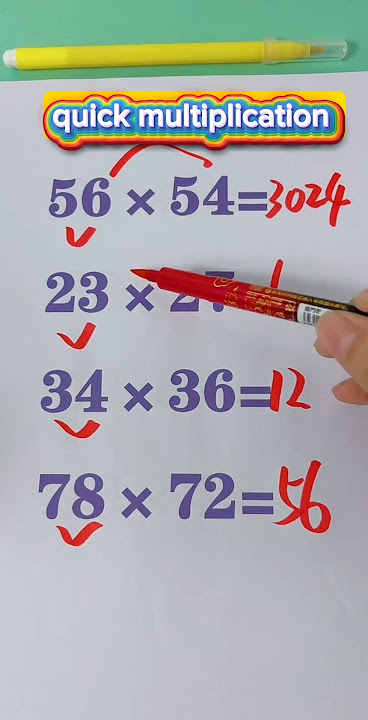 quick multiplication
56 × 54=3024
23 × 27
34 × 36=12
78 × 72=56